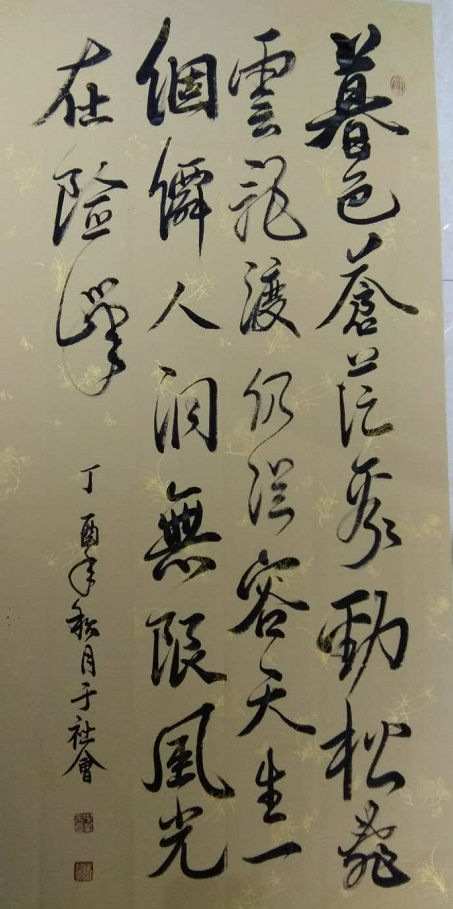 暮色蒼茫看勁松亂
雲飛渡仍從容天生一
個僊人洞無限風光
在險峰
丁酉年秋月于社會